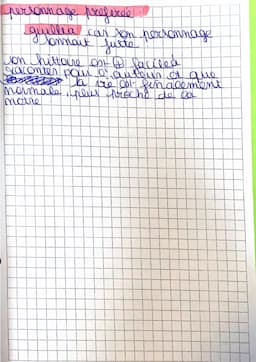 personnage préférée
guillia car son personnage
sonnait juste
son histoire est ⊕ facile à
raconter pour l'auteur et que
sa vie est finalement
normale, plus proche de la
notre